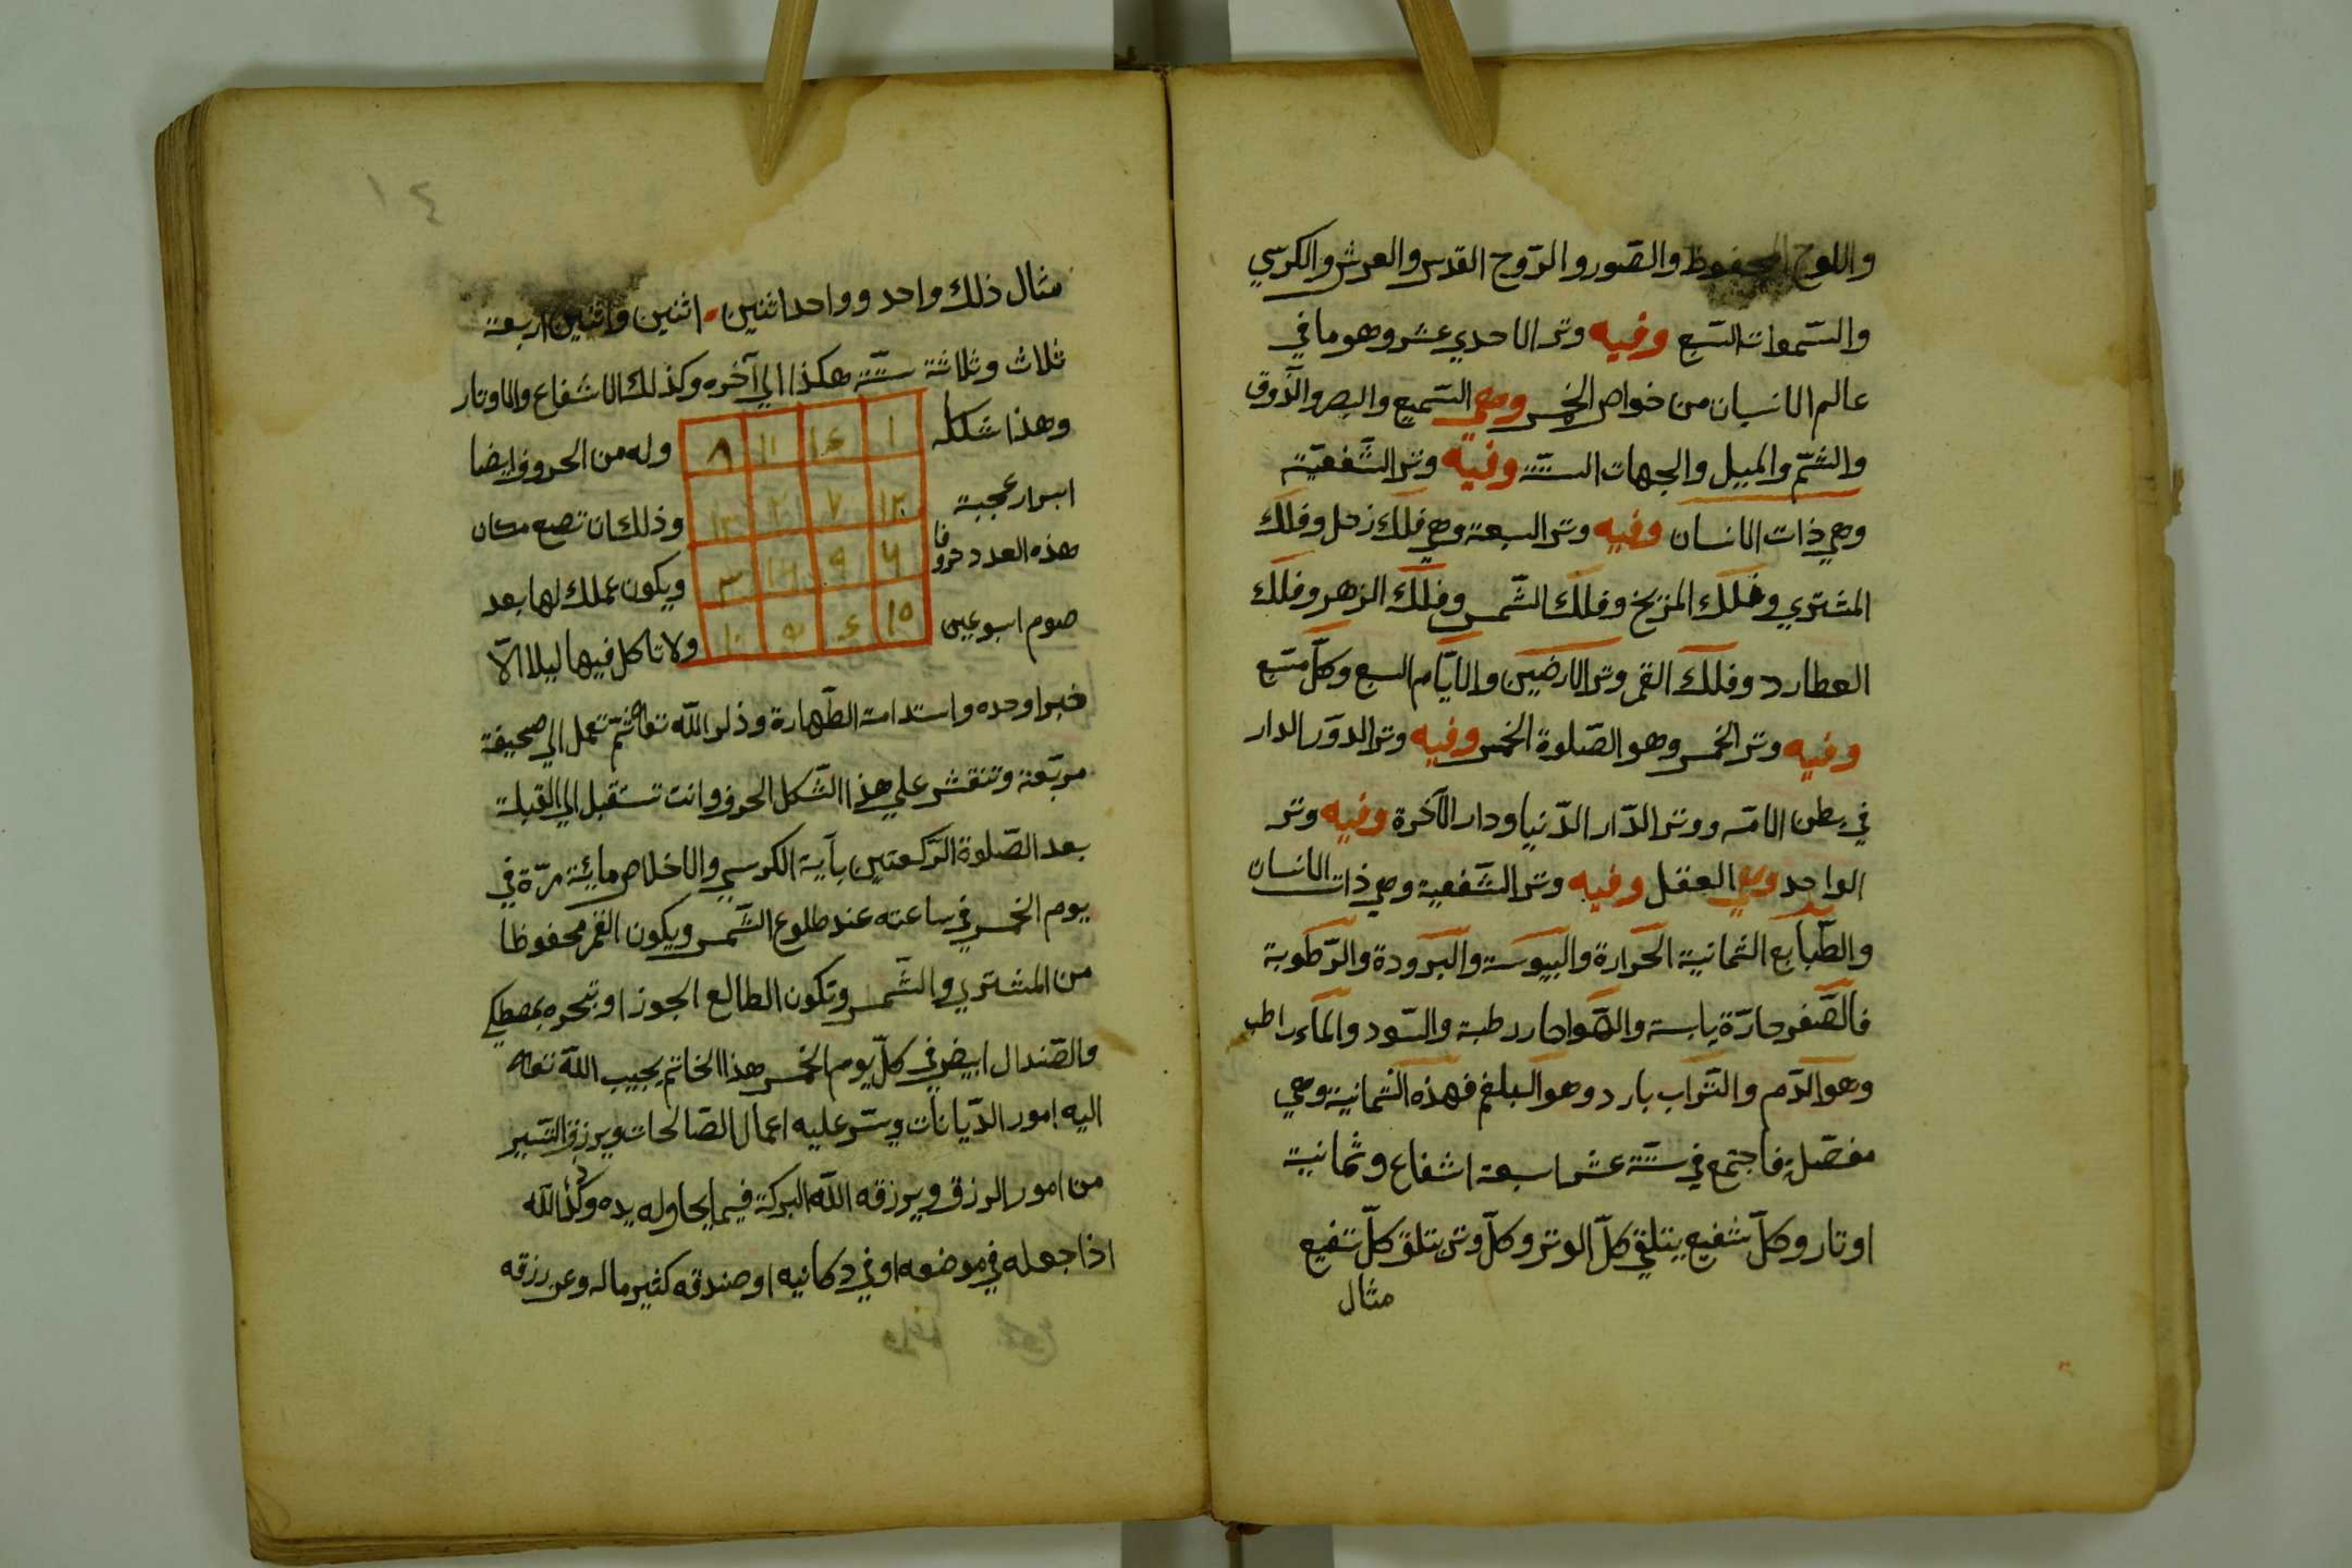 واللوح المحفوظ والصّور والرّوح القدس والعرش والكرسي
والسّموات السّبع وفيه وتر الاحدي عشر وهو ما في
عالم الانسان من خواص الخمس وهي السّميع والبصر والذّوق
والشّم والميل والجهات السّتّة وفيه وتر الشّفعيّة
وهي ذات الانسان وفيه وتر السبعة وهي فلك زحل وفلك
المشتري وفلك المزيخ وفلك الشّمس وفلك الزهر وفلك
العطارد وفلك القمر وتر الارضين والايّام السبع وكلّ متبع
وفيه وتر الخمس وهو الصّلوة الخمس وفيه وتر الدوّر الدار
في بطن الامّه ووتر الدّار الدّنيا ودار الآخرة وفيه وتر
الواحد وهي العقل وفيه وتر الشّفعية وهي ذات الانسان
والطّبايع الثمانية الحرارة والبيوسة والبرودة والرّطوبة
فالصّفر حارّة يابسة والهوا حار رطبة والسّود والماء راطب
وهو الدّم والتّراب بارد وهو البلغم فهذه الثمانية وهي
مفصّلة فاجتمع في ستّة عشر اسبعة اشفاع وثمانية
اوتار وكلّ شفيع يتلقي كلّ الوتر وكلّ وتر يتلق كلّ تفيع
مثال
١٤
مثال ذلك واحد وواحد اثنين اثنين واثنين اربعة
ثلاث وثلاثة ستّة هكذا الي آخره وكذلك الاشفاع والاوتار
وهذا شكله ١ ١٤ ١١ ٨ وله من الحروف ايضا
اسرار عجيبة ١٢ ٧ ٢ ١٣ وذلك ان تضع مكان
هذه العدد حروفا ٦ ٩ ١٦ ٣ ويكون عملك لها بعد
صوم اسبوعين ١٥ ٤ ٥ ١٠ ولا تاكل فيها ليلا الّا
خبرا وحده واستدامة الطّهارة وذكر اللّه تعا ثمّ تعمل الي صحيفة
مربّعة وتنقش علي هذا الشّكل الحروف وانت تستقبل الي القبلة
بعد الصّلوة الرّكعتين بآية الكرسي والاخلاص مائة مرّة في
يوم الخمس في ساعته عند طلوع الشّمس ويكون القمر محفوظا
من المشتري والشّمس وتكون الطالع الجوزا وتبحره بمصطكي
والصّندال ابيض في كلّ يوم الخمس هذا الخاتم يجيب اللّه تعا
اليه امور الدّيانات ويسّر عليه اعمال الصّالحات ويرزق السّير
من امور الرزق ويرزقه اللّه البركة فيما يحاوله يده وكذا اللّه
اذا جعله في موضعه او في دكانيه او صندقه كثير ماله وعن رزقه